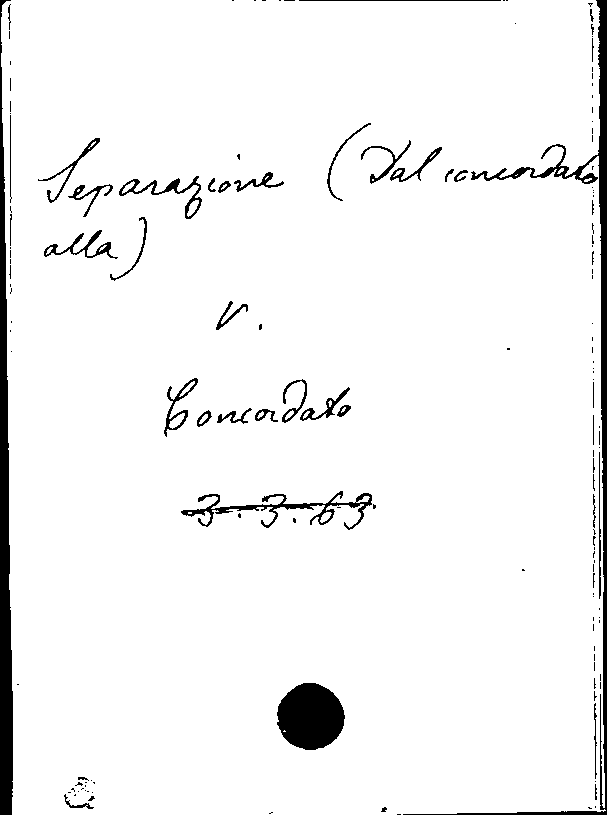 Separazione (Dal concordato
alla)
v.
Concordato
3.3.63